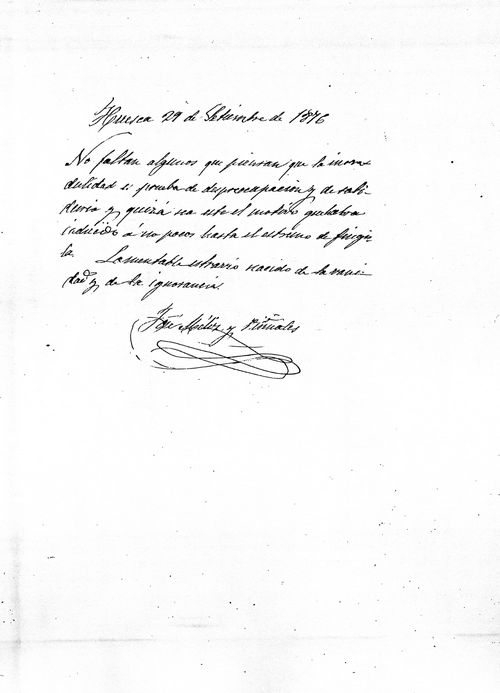 Huesca 29 de Setiembre de 1876
No faltan algunos que piensan que la incre-
dulidad es prueba de despreocupacion y de sabi-
duria y quizá sea este el motivo que habra
inducido á no pocos hasta el estremo de fingir-
la. Lamentable estravio nacido de la vani-
dad y de la ignorancia.
y